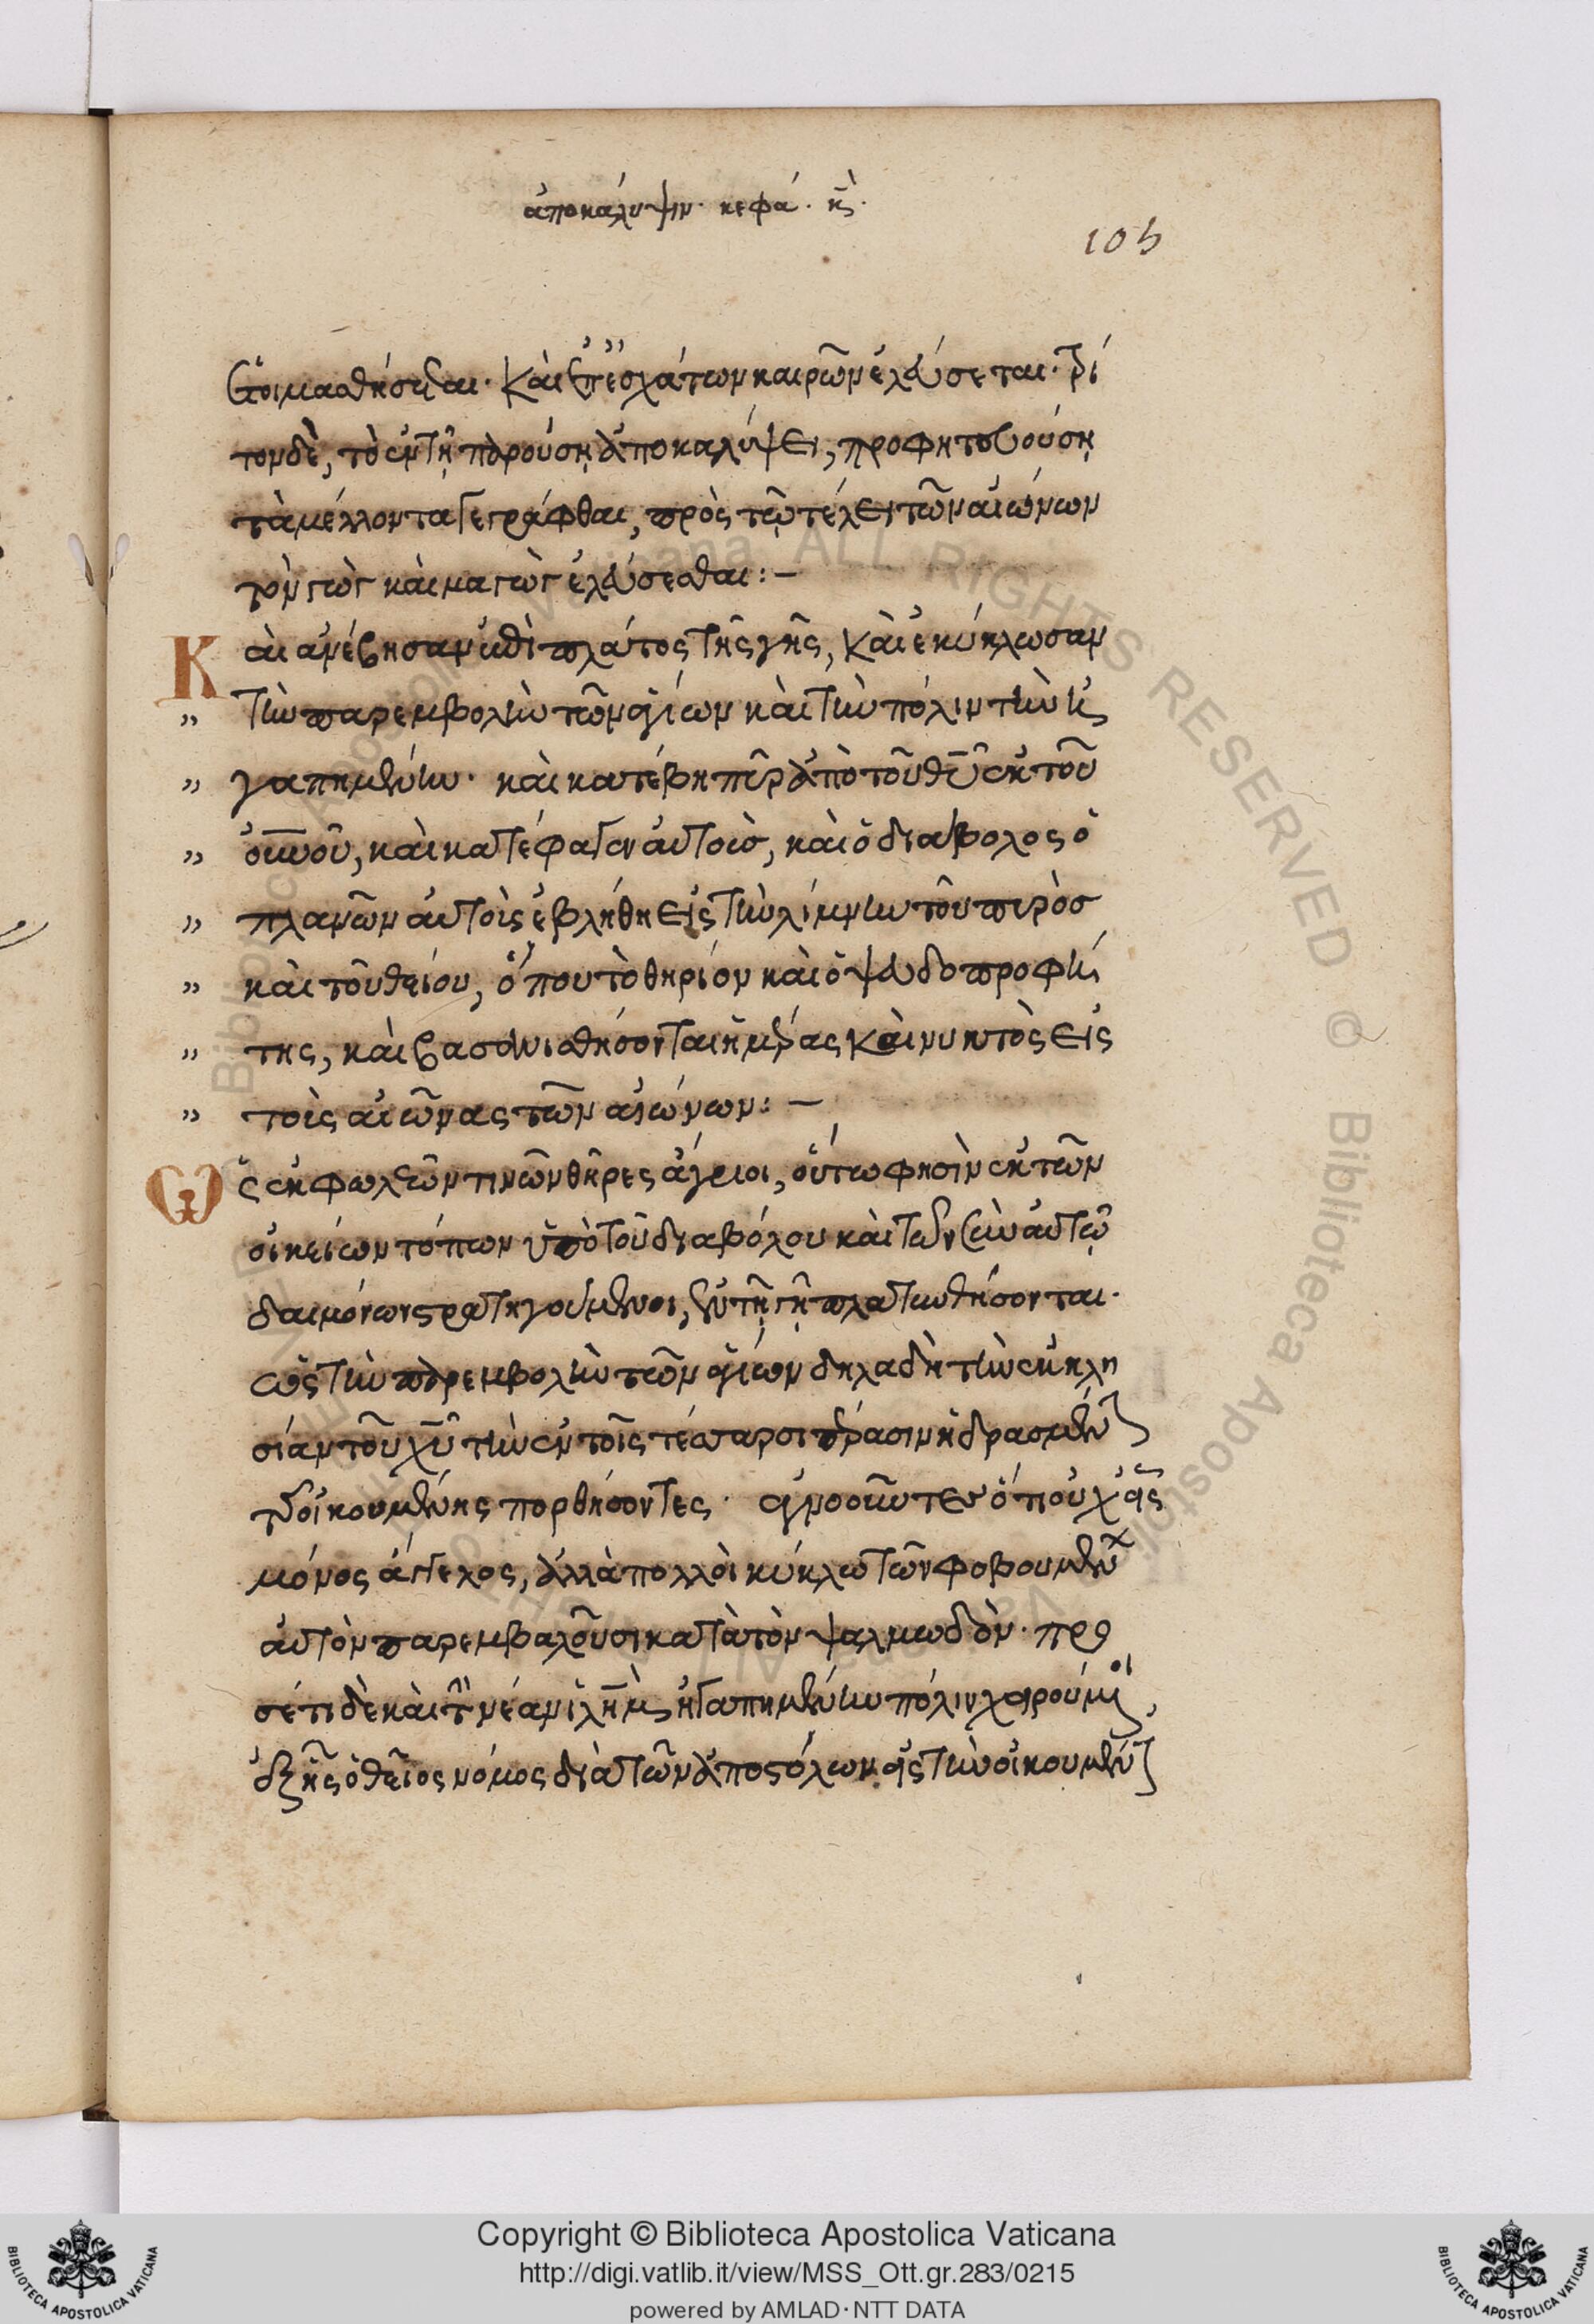 ἀποκάλυψιν. κεφά. κϛ.
105
ἑτοιμασθήσεται. καὶ ἐπ' ἐσχάτων καιρῶν ἐλεύσεται.
τον δὲ, τὸ ἐν τῇ παρούσῃ ἀποκαλύψει, προφητευούσῃ
τὰ μέλλοντα γεγράφθαι, πρὸς τῷ τέλει τῶν αἰώνων
τὸν γὼγ καὶ μαγὼγ ἐλεύσεσθαι: –
Καὶ ἀνέβησαν ἐπὶ πλάτος τῆς γῆς, καὶ ἐκύκλωσαν
" τὴν παρεμβολὴν τῶν ἁγίων καὶ τὴν πόλιν τὴν ἠ
" γαπημένην. καὶ κατέβη πῦρ ἀπὸ τοῦ θῦ ἐκ τοῦ
" οὐνοῦ, καὶ κατέφαγεν αὐτοὺσ, καὶ ὁ διάβολος ὁ
" πλανῶν αὐτοὺς ἐβλήθη εἰς τὴν λίμνην τοῦ πυρὸσ
" καὶ τοῦ θείου, ὅπου τὸ θηρίον καὶ ὁ ψευδοπροφή
" της, καὶ βασανισθήσονται ἡμέρας καὶ νυκτὸς εἰς
" τοὺς αἰῶνας τῶν αἰώνων: –
Ὡς ἐκ φωλεῶν τινῶν θῆρες ἄγριοι, οὕτω φησὶν ἐκ τῶν
οἰκείων τόπων ὑπὸ τοῦ διαβόλου καὶ τῶν σὺν αὐτῷ
δαιμόνων στρατηγούμενοι, ἐν τῇ γῇ πλατυνθήσονται.
ὡς τὴν παρεμβολὴν τῶν ἁγίων δηλαδὴ τὴν ἐκκλη
σίαν τοῦ χῦ τὴν ἐν τοῖς τέσσαρσι πέρασιν ἡδρασμένην
τῆς οἰκουμένης πορθήσοντες. ἀγνοοῦντες ὅπου χ εἷς
μόνος ἄγγελος, ἀλλὰ πολλοὶ κύκλω τῶν φοβουμένων
αὐτὸν παρεμβαλοῦσι κατὰ τὸν ψαλμωδὸν. προ
σέτι δὲ καὶ τὴν νέαν ἱλὴμ ἠγαπημένην πόλιν χειρούμενοι,
ἐξ ἧς ὁ θεῖος νόμος διὰ τῶν ἀποστόλων εἰς τὴν οἰκουμένην
Copyright © Biblioteca Apostolica Vaticana
http://digi.vatlib.it/view/MSS_Ott.gr.283/0215
powered by AMLAD·NTT DATA